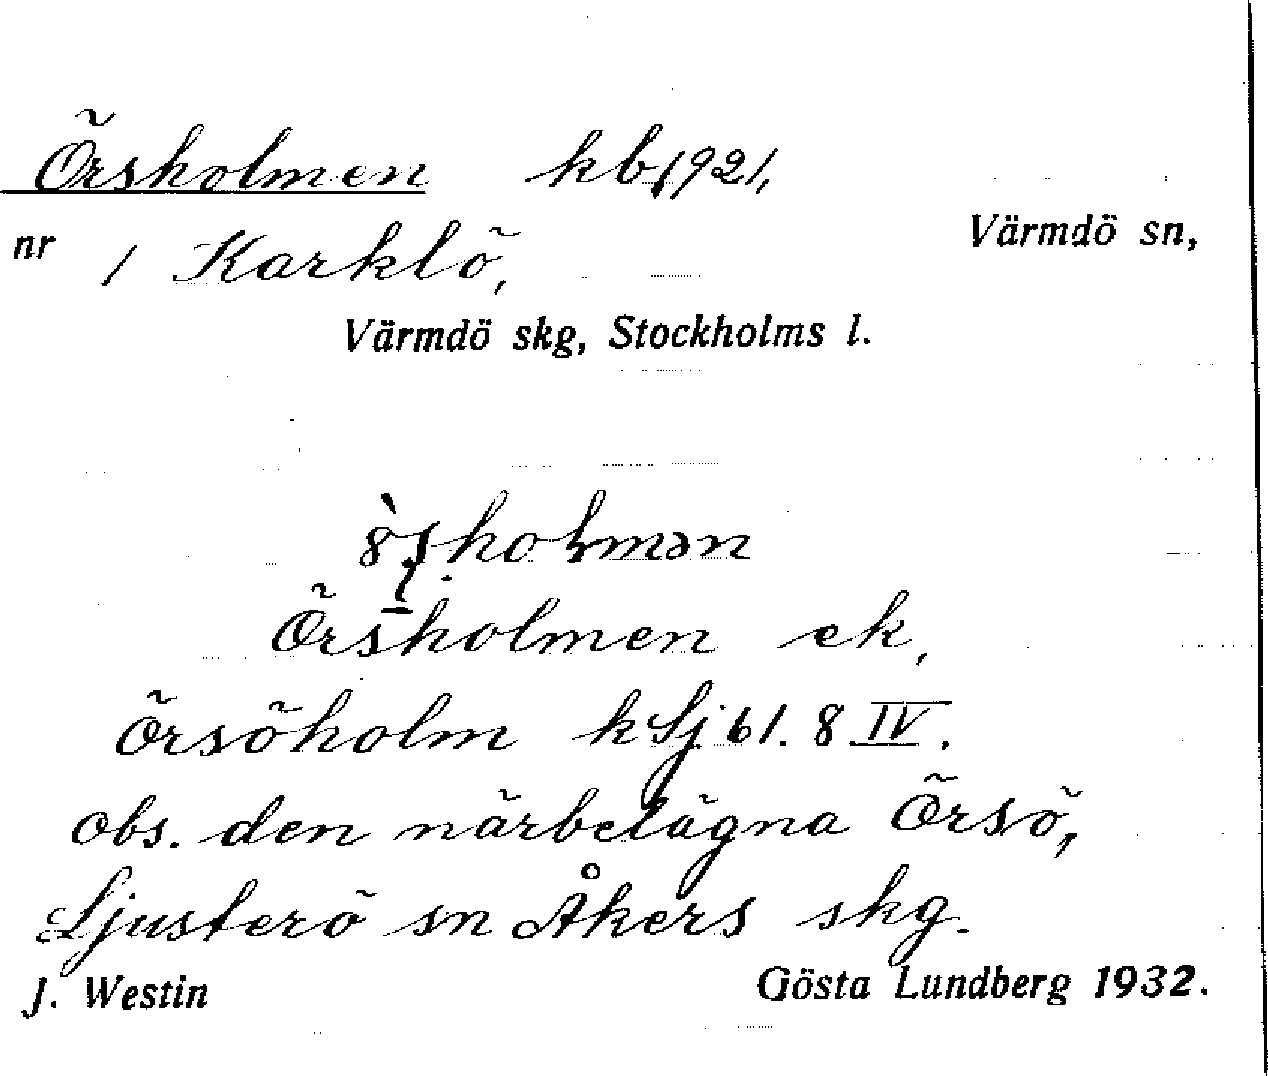 Örsholmen kb, 1921,
Värmdö sn,
nr 1 Karklö,
Värmdö skg, Stockholms l.
Örsholmen ek,
Örsöholm k Sj bl. 8 IV.
obs. den närbelägna Örsö,
Ljusterö sn Åkers skg.
J. Westin Gösta Lundberg 1932.